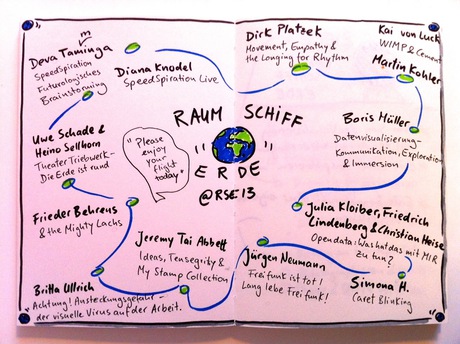 Deva Taminga
m
SpeedSpiration
Futurologisches
Brainstorming
Diana Knodel
SpeedSpiration Live
Dirk Platzek
Movement, Empathy &
the Longing for Rhythm
Kai von Luck
WIMP & Cement
Martin Kohler
Uwe Schade &
Heino Sellhorn
Theater Triebwerk -
Die Erde ist rund
RAUM SCHIFF
"ERDE"
@RSE13
"Please
enjoy
your
flight
today"
Boris Müller
Datenvisualisierung -
Kommunikation, Exploration
& Immersion
Frieder Behrens
& the Mighty Lachs
Julia Kloiber, Friedrich
Lindenberg & Christian Heise
Opendata: Was hat das mit MIR
zu tun?
Jeremy Tai Abbett
Ideas, Tensegrity &
My Stamp Collection
Jürgen Neumann
Freifunk ist tot!
Lang lebe Freifunk!
Simona H.
Caret Blinking
Britta Ullrich
Achtung! Ansteckungsgefahr -
der visuelle Virus auf der Arbeit.